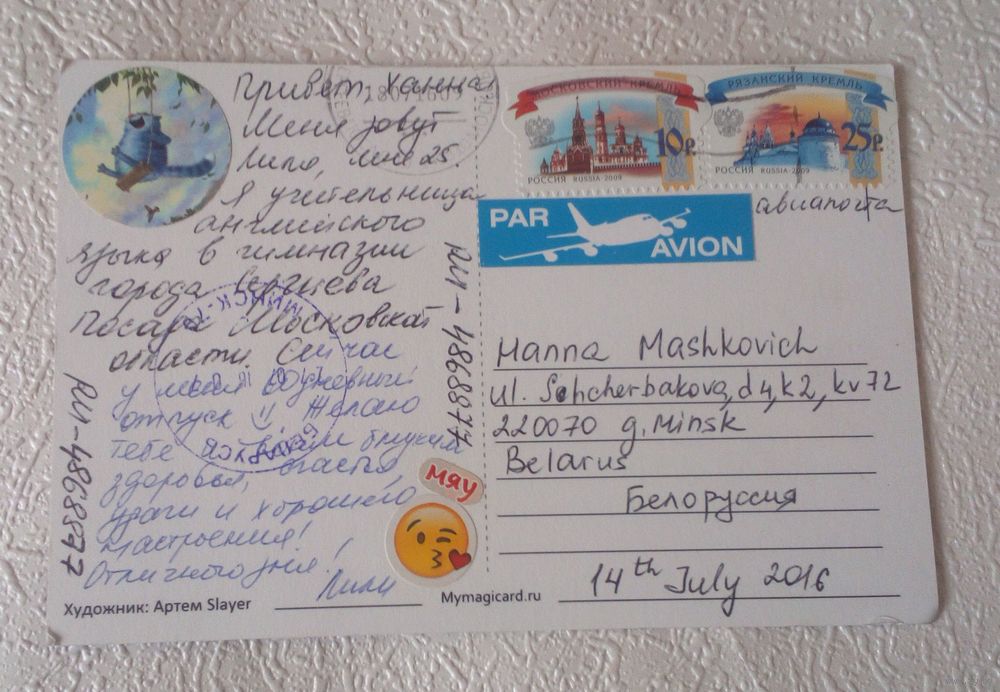 Привет, Ханна
Меня зовут
Лила, мне 25.
Я учительница
английского
языка в гимназии
города Сергиева
Посада Московской
области. Сейчас
у меня
отпуск :) Желаю
тебе и твоим близким
здоровья, счастья,
удачи и хорошего
настроения!
Отличного дня!
Лили
RU-4868877
RU-4868877
мяу
Художник: Артем Slayer
Mymagicard.ru
МОСКОВСКИЙ КРЕМЛЬ
10р.
РОССИЯ RUSSIA·2009
РЯЗАНСКИЙ КРЕМЛЬ
25р.
РОССИЯ RUSSIA·2009
PAR
AVION
авиапочта
Hanna Mashkovich
Ul. Schcherbakova, d4, k2, kv 72
220070 g. Minsk
Belarus
Белоруссия
14th July 2016